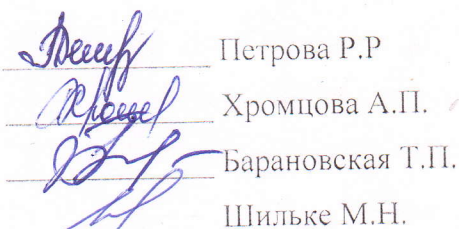 Петрова Р.Р
Хромцова А.П.
Барановская Т.П.
Шильке М.Н.